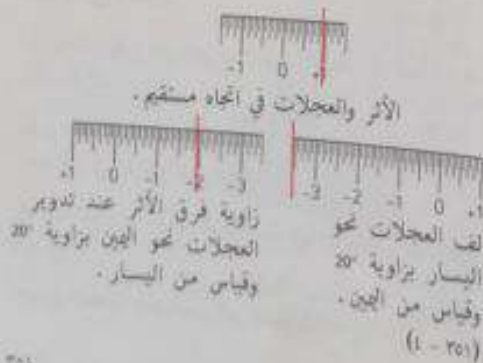 -1 0 +1
الأثر والعجلات في اتجاه مستقيم .
+1 0 -1 -2 -3
-3 -2 -1 0 +1
زاوية فرق الأثر عند تدوير
العجلات نحو اليمين بزاوية 20°
وقياس من اليسار .
لف العجلات نحو
اليسار بزاوية 20°
وقياس من اليمين .
(٣٥١ - ٤)